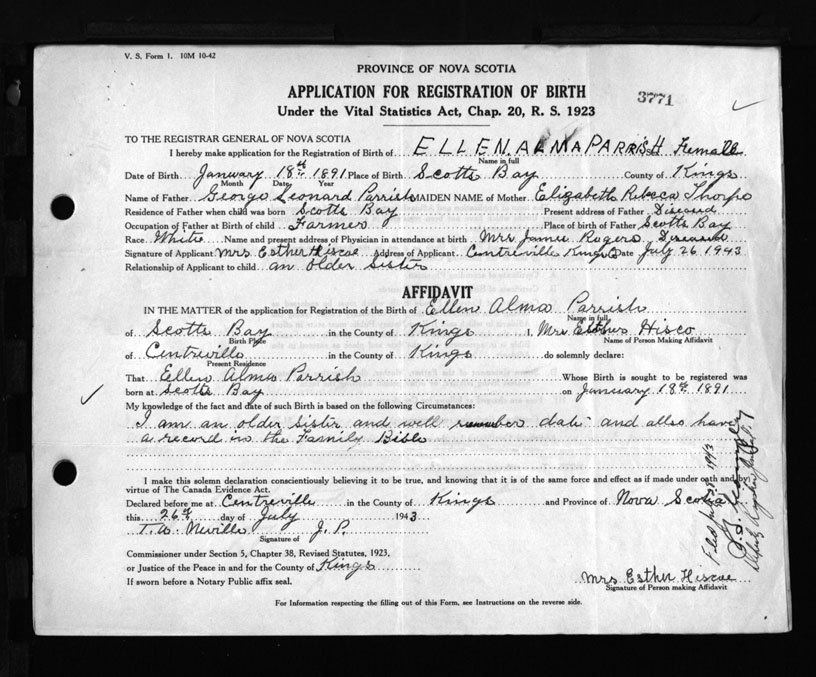 V. S. Form 1. 10M 10-42
PROVINCE OF NOVA SCOTIA
APPLICATION FOR REGISTRATION OF BIRTH
3771
Under the Vital Statistics Act, Chap. 20, R. S. 1923
TO THE REGISTRAR GENERAL OF NOVA SCOTIA
I hereby make application for the Registration of Birth of ELLEN ALMA PARRISH Female
Name in full
Date of Birth January 18th 1891 Place of Birth Scotts Bay County of Kings
Month Date Year
Name of Father George Leonard Parrish MAIDEN NAME of Mother Elizabeth Rebeca Thorpe
Residence of Father when child was born Scotts Bay Present address of Father Diseased
Occupation of Father at Birth of child Farmer Place of birth of Father Scotts Bay
Race White Name and present address of Physician in attendance at birth Mrs James Rogers Diseased
Signature of Applicant Mrs Esther Hiscoe Address of Applicant Centreville Kings Co Date July 26 1943
Relationship of Applicant to child an older Sister
AFFIDAVIT
IN THE MATTER of the application for Registration of the Birth of Ellen Alma Parrish
Name in full
of Scotts Bay in the County of Kings I, Mrs Esther Hisco
Birth Place Name of Person Making Affidavit
of Centreville in the County of Kings do solemnly declare:
Present Residence
That Ellen Alma Parrish Whose Birth is sought to be registered was
born at Scotts Bay on January 18th 1891
My knowledge of the fact and date of such Birth is based on the following Circumstances:
I am an older sister and well remember date and allso have
a record in the Family Bible
I make this solemn declaration conscientiously believing it to be true, and knowing that it is of the same force and effect as if made under oath and by
virtue of The Canada Evidence Act.
Declared before me at Centreville in the County of Kings and Province of Nova Scotia
this 26th day of July 1943
T. W. Neville J. P.
Signature of
Commissioner under Section 5, Chapter 38, Revised Statutes, 1923,
or Justice of the Peace in and for the County of Kings
If sworn before a Notary Public affix seal.
Mrs Esther Hiscoe
Signature of Person making Affidavit
For Information respecting the filling out of this Form, see Instructions on the reverse side.